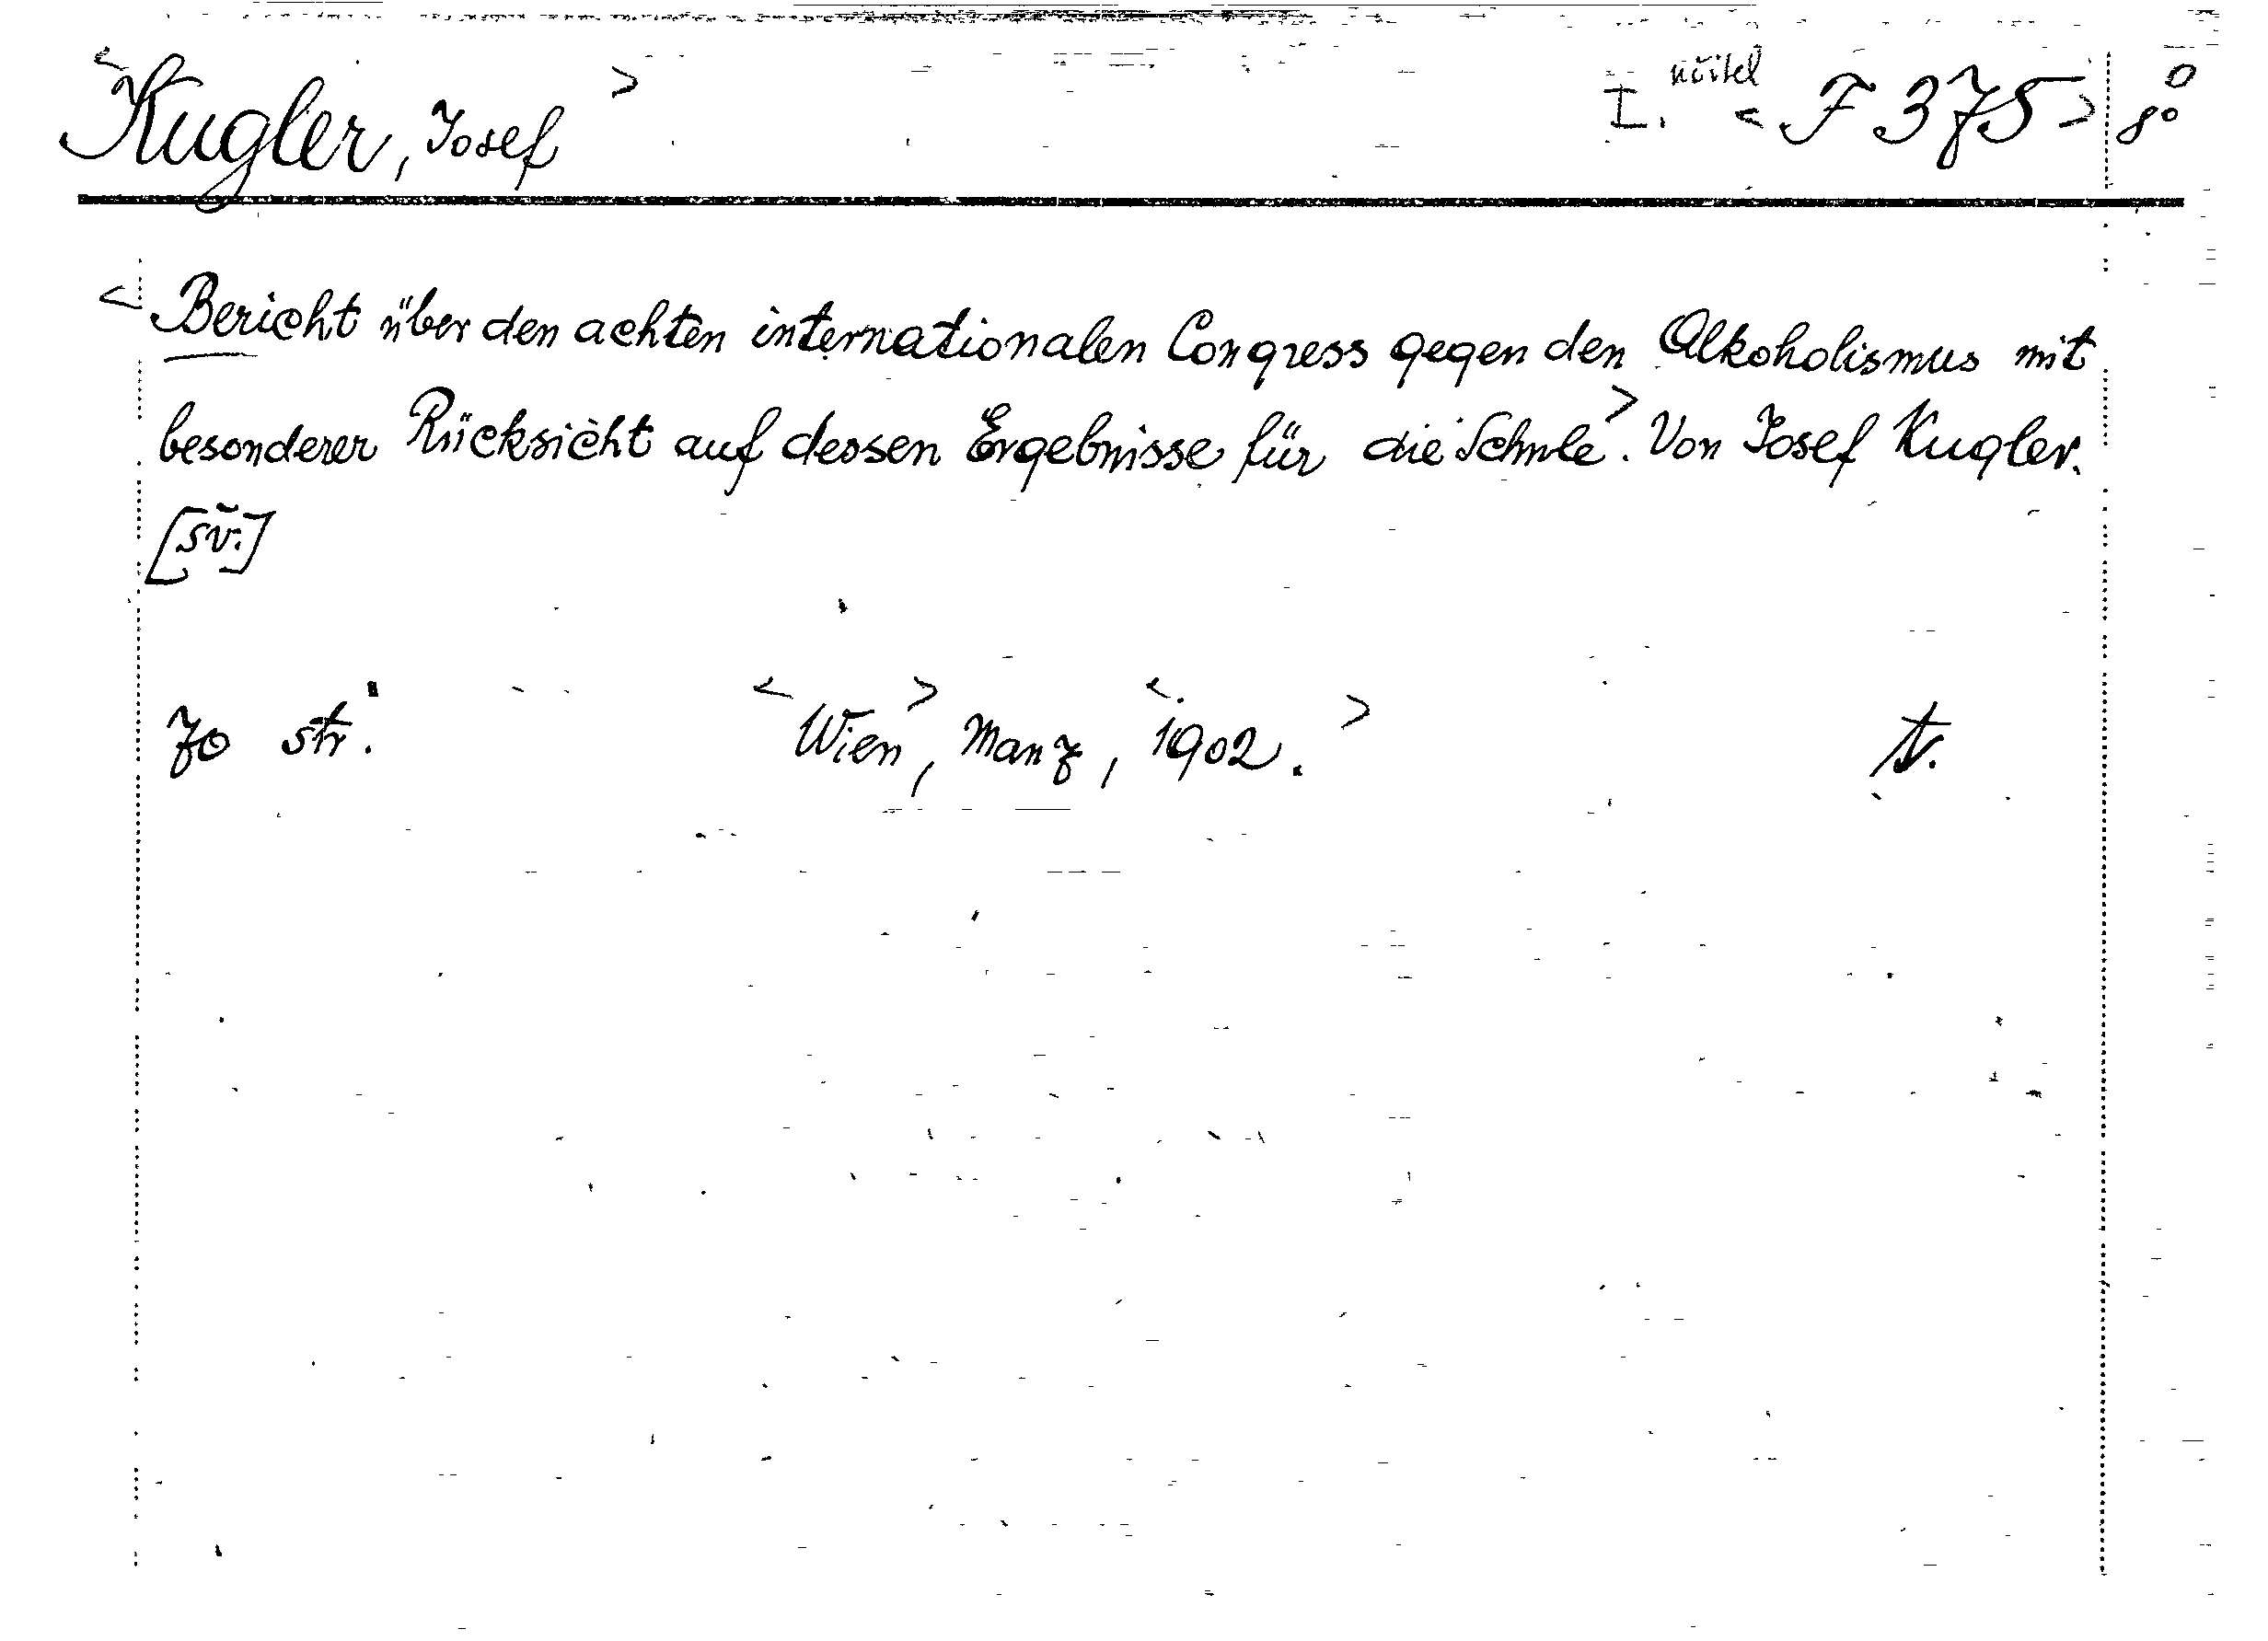 <Kugler, Josef> I. učitel <F 375> 8°
<Bericht über den achten internationalen Congress gegen den Alkoholismus mit
besonderer Rücksicht auf dessen Ergebnisse für die Schule>. Von Josef Kugler.
[sv.]
70 str. <Wien>, Manz, <1902.>